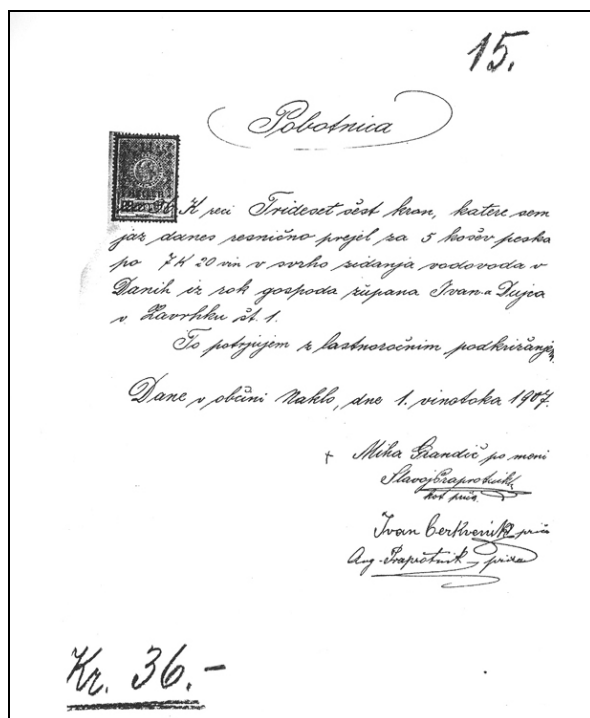 15.
Pobotnica
K reci Trideset šest kron, katere sem
jaz danes resnično prejel za 5 košev peska
po 7 K 20 vin v svrho zidanja vodovoda v
Danih iz rok gospoda župana Ivan-a Dujca
v Zavrhku št. 1.
To potrjujem z lastnoročnim podkrižanjem
Dane v občini Naklo, dne 1. vinotoka 1907.
+ Miha Grandič po meni
Slavoj Praprotnik
kot priča.
Ivan Cerkvenik priča
Aug. Praprotnik priča
Kr. 36.-